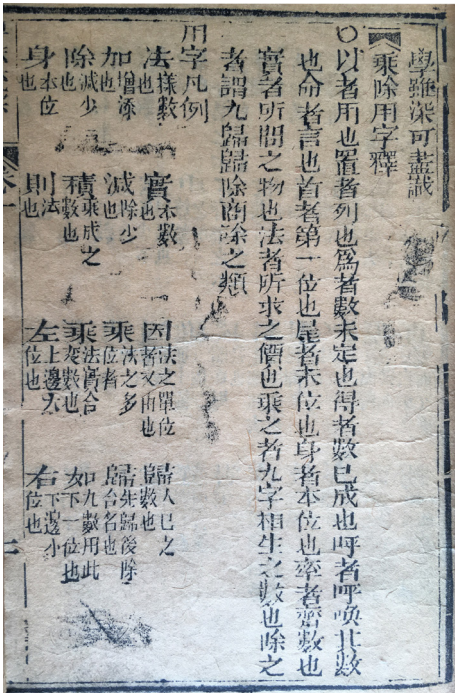 學雖深可盡識
乘除用字釋
○以者用也置者列也爲者數未定也得者數已成也呼者呼喚其數
也命者言也首者第一位也尾者末位也身者本位也率者齊數也
實者所問之物也法者所求之價也乘之者九字相生之數也除之
者謂九歸歸除商除之類
用字凡例
法樣數也 實本數也 因法之單位者又由也 歸人巳之歸數也
加增添也 減除少也 乘法之多位者 歸先歸後除台名也
除減少也 積乘成之數也 乘法實合變數也 如九數用此如下一位也
身本位也 則法也 左上邊大位也 右下邊小位也